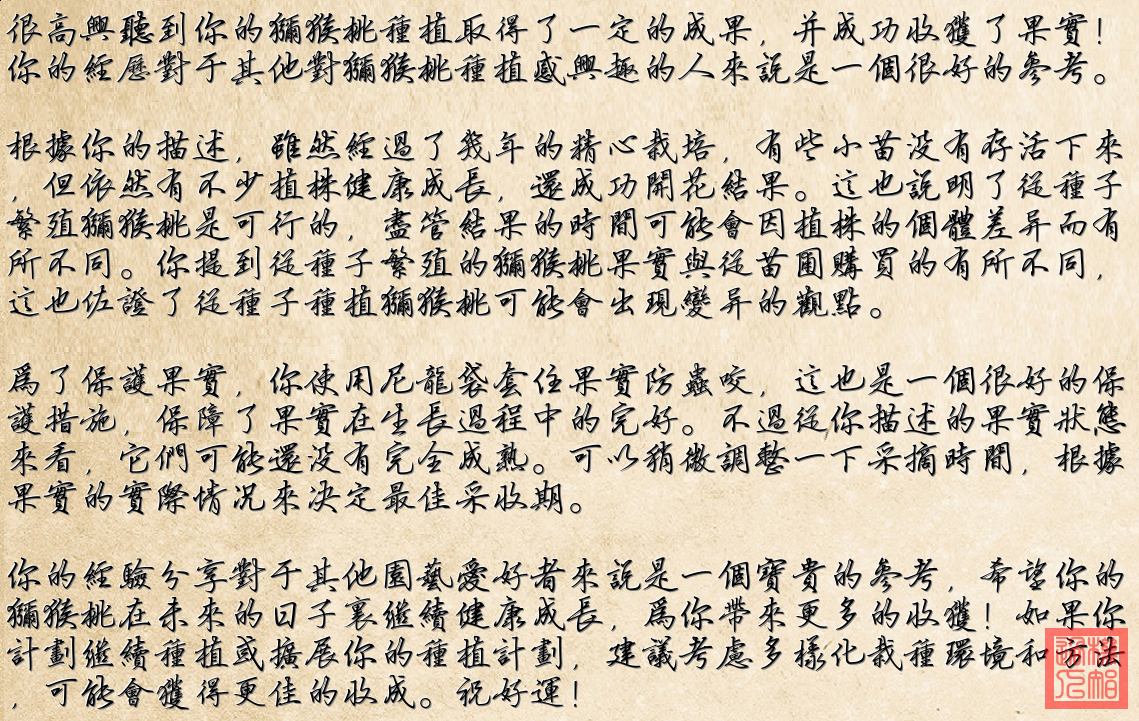 很高興聽到你的獼猴桃種植取得了一定的成果，并成功收獲了果實！
你的經歷對于其他對獼猴桃種植感興趣的人來說是一個很好的參考。
根據你的描述，雖然經過了幾年的精心栽培，有些小苗没有存活下來
，但依然有不少植株健康成長，還成功開花結果。這也說明了從種子
繁殖獼猴桃是可行的，盡管結果的時間可能會因植株的個體差异而有
所不同。你提到從種子繁殖的獼猴桃果實與從苗圃購買的有所不同，
這也佐證了從種子種植獼猴桃可能會出現變异的觀點。
爲了保護果實，你使用尼龍袋套住果實防蟲咬，這也是一個很好的保
護措施，保障了果實在生長過程中的完好。不過從你描述的果實狀態
來看，它們可能還没有完全成熟。可以稍微調整一下采摘時間，根據
果實的實際情况來决定最佳采收期。
你的經驗分享對于其他園藝愛好者來說是一個寶貴的參考，希望你的
獼猴桃在未來的日子裏繼續健康成長，爲你帶來更多的收獲！如果你
計劃繼續種植或擴展你的種植計劃，建議考慮多樣化栽種環境和方法
，可能會獲得更佳的收成。祝好運！